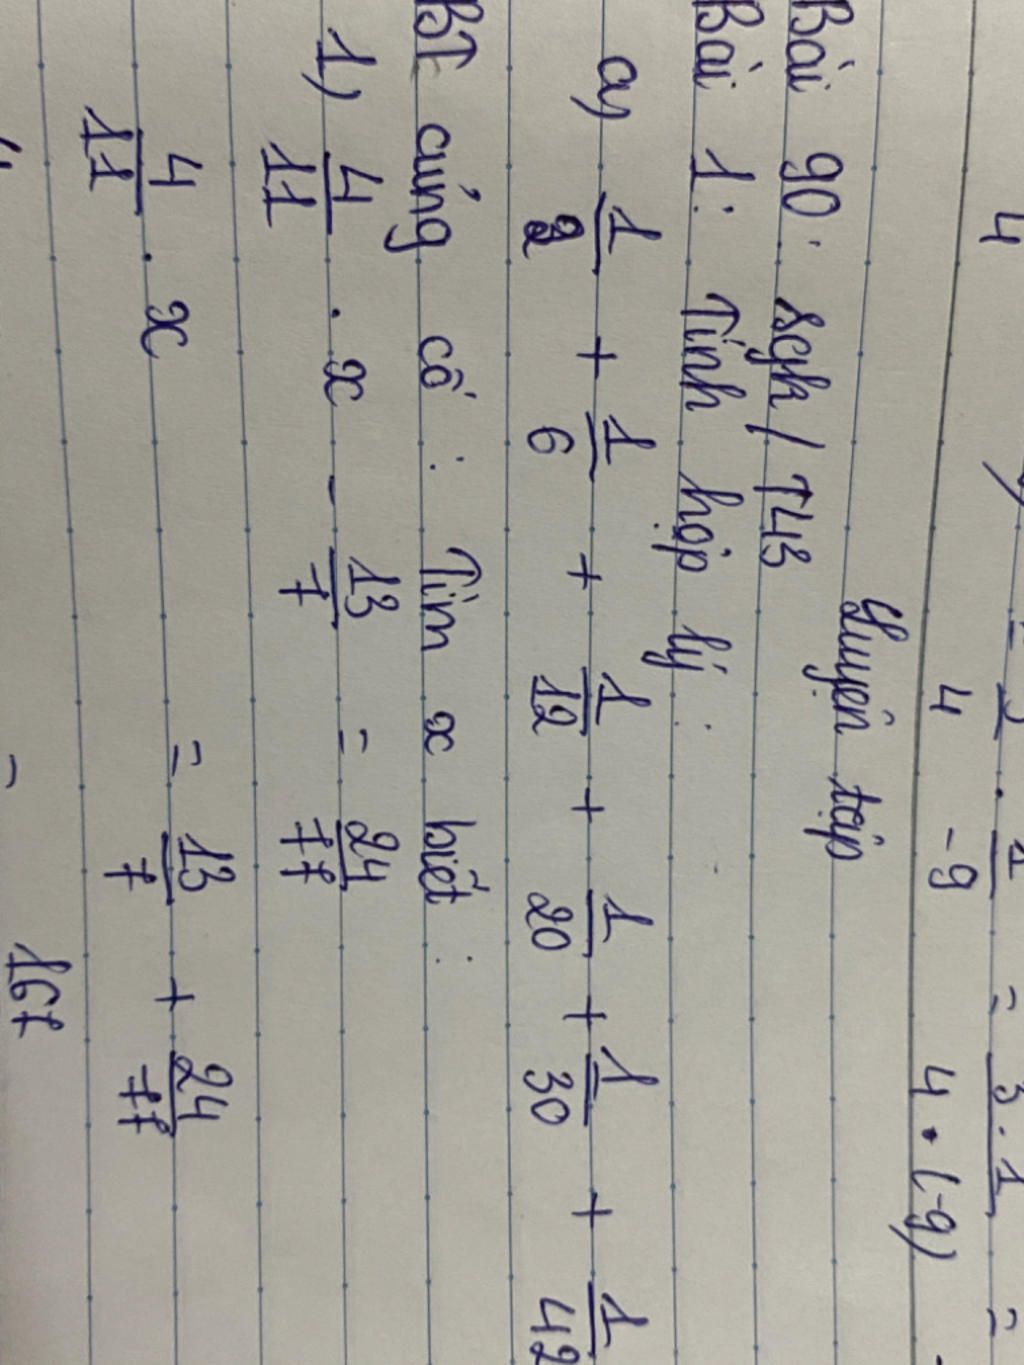 4 4 . -9 = 4 . (-9) =
= 3 . 1 3 . 1
Luyện tập
Bài 90: sgk / T43
Bài 1: Tính hợp lý:
a, 1/2 + 1/6 + 1/12 + 1/20 + 1/30 + 1/42
BT củng cố: Tìm x biết:
1, 4/11 . x - 13/7 = 24/77
4/11 . x = 13/7 + 24/77
4 = 167